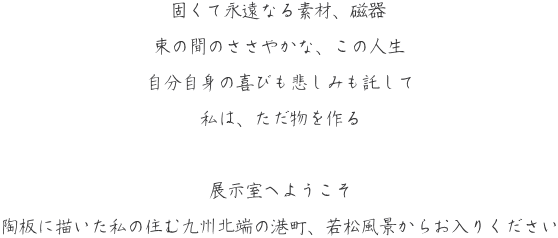 固くて永遠なる素材、磁器
束の間のささやかな、この人生
自分自身の喜びも悲しみも託して
私は、ただ物を作る
展示室へようこそ
陶板に描いた私の住む九州北端の港町、若松風景からお入りください